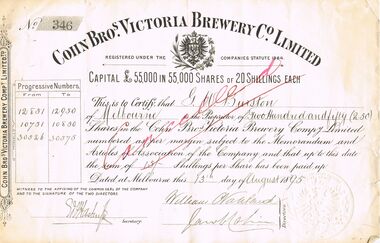 No 346
COHN BROS. VICTORIA BREWERY CO. LIMITED
REGISTERED UNDER THE COMPANIES STATUTE 1864
CAPITAL £55,000 IN 55,000 SHARES OF 20 SHILLINGS EACH
Progressive Numbers.
From To
12,831 12,930
10,731 10,830
This is to Certify that G. Burston
of Melbourne is the Proprietor of Two Hundred and fifty (250)
Shares in the Cohn Bros Victoria Brewery Compy Limited
numbered as per margin subject to the Memorandum and
Articles of Association of the Company and that up to this date
the sum of Shillings per Share has been paid up
Dated at Melbourne this 13th day of August 1895
WITNESS TO THE AFFIXING OF THE COMMON SEAL OF THE COMPANY
AND TO THE SIGNATURE OF THE TWO DIRECTORS
Jacob Cohn
COHN BROS VICTORIA BREWERY COMPY LIMITED